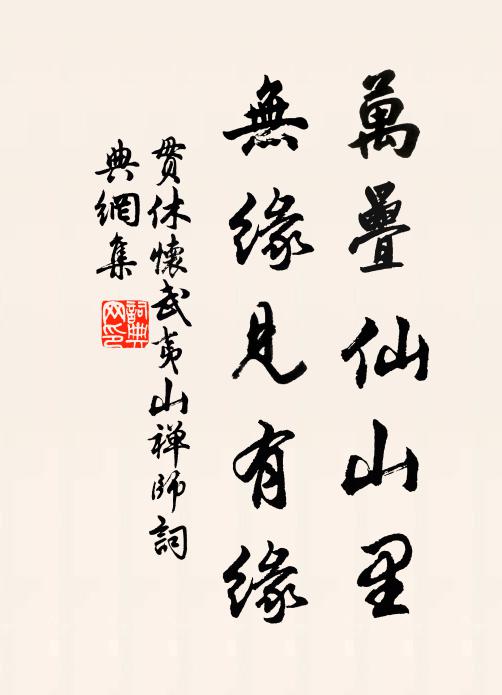 萬疊仙山里
無緣見有緣
貫休懷武夷山禅師詞
典網集
詞典網印